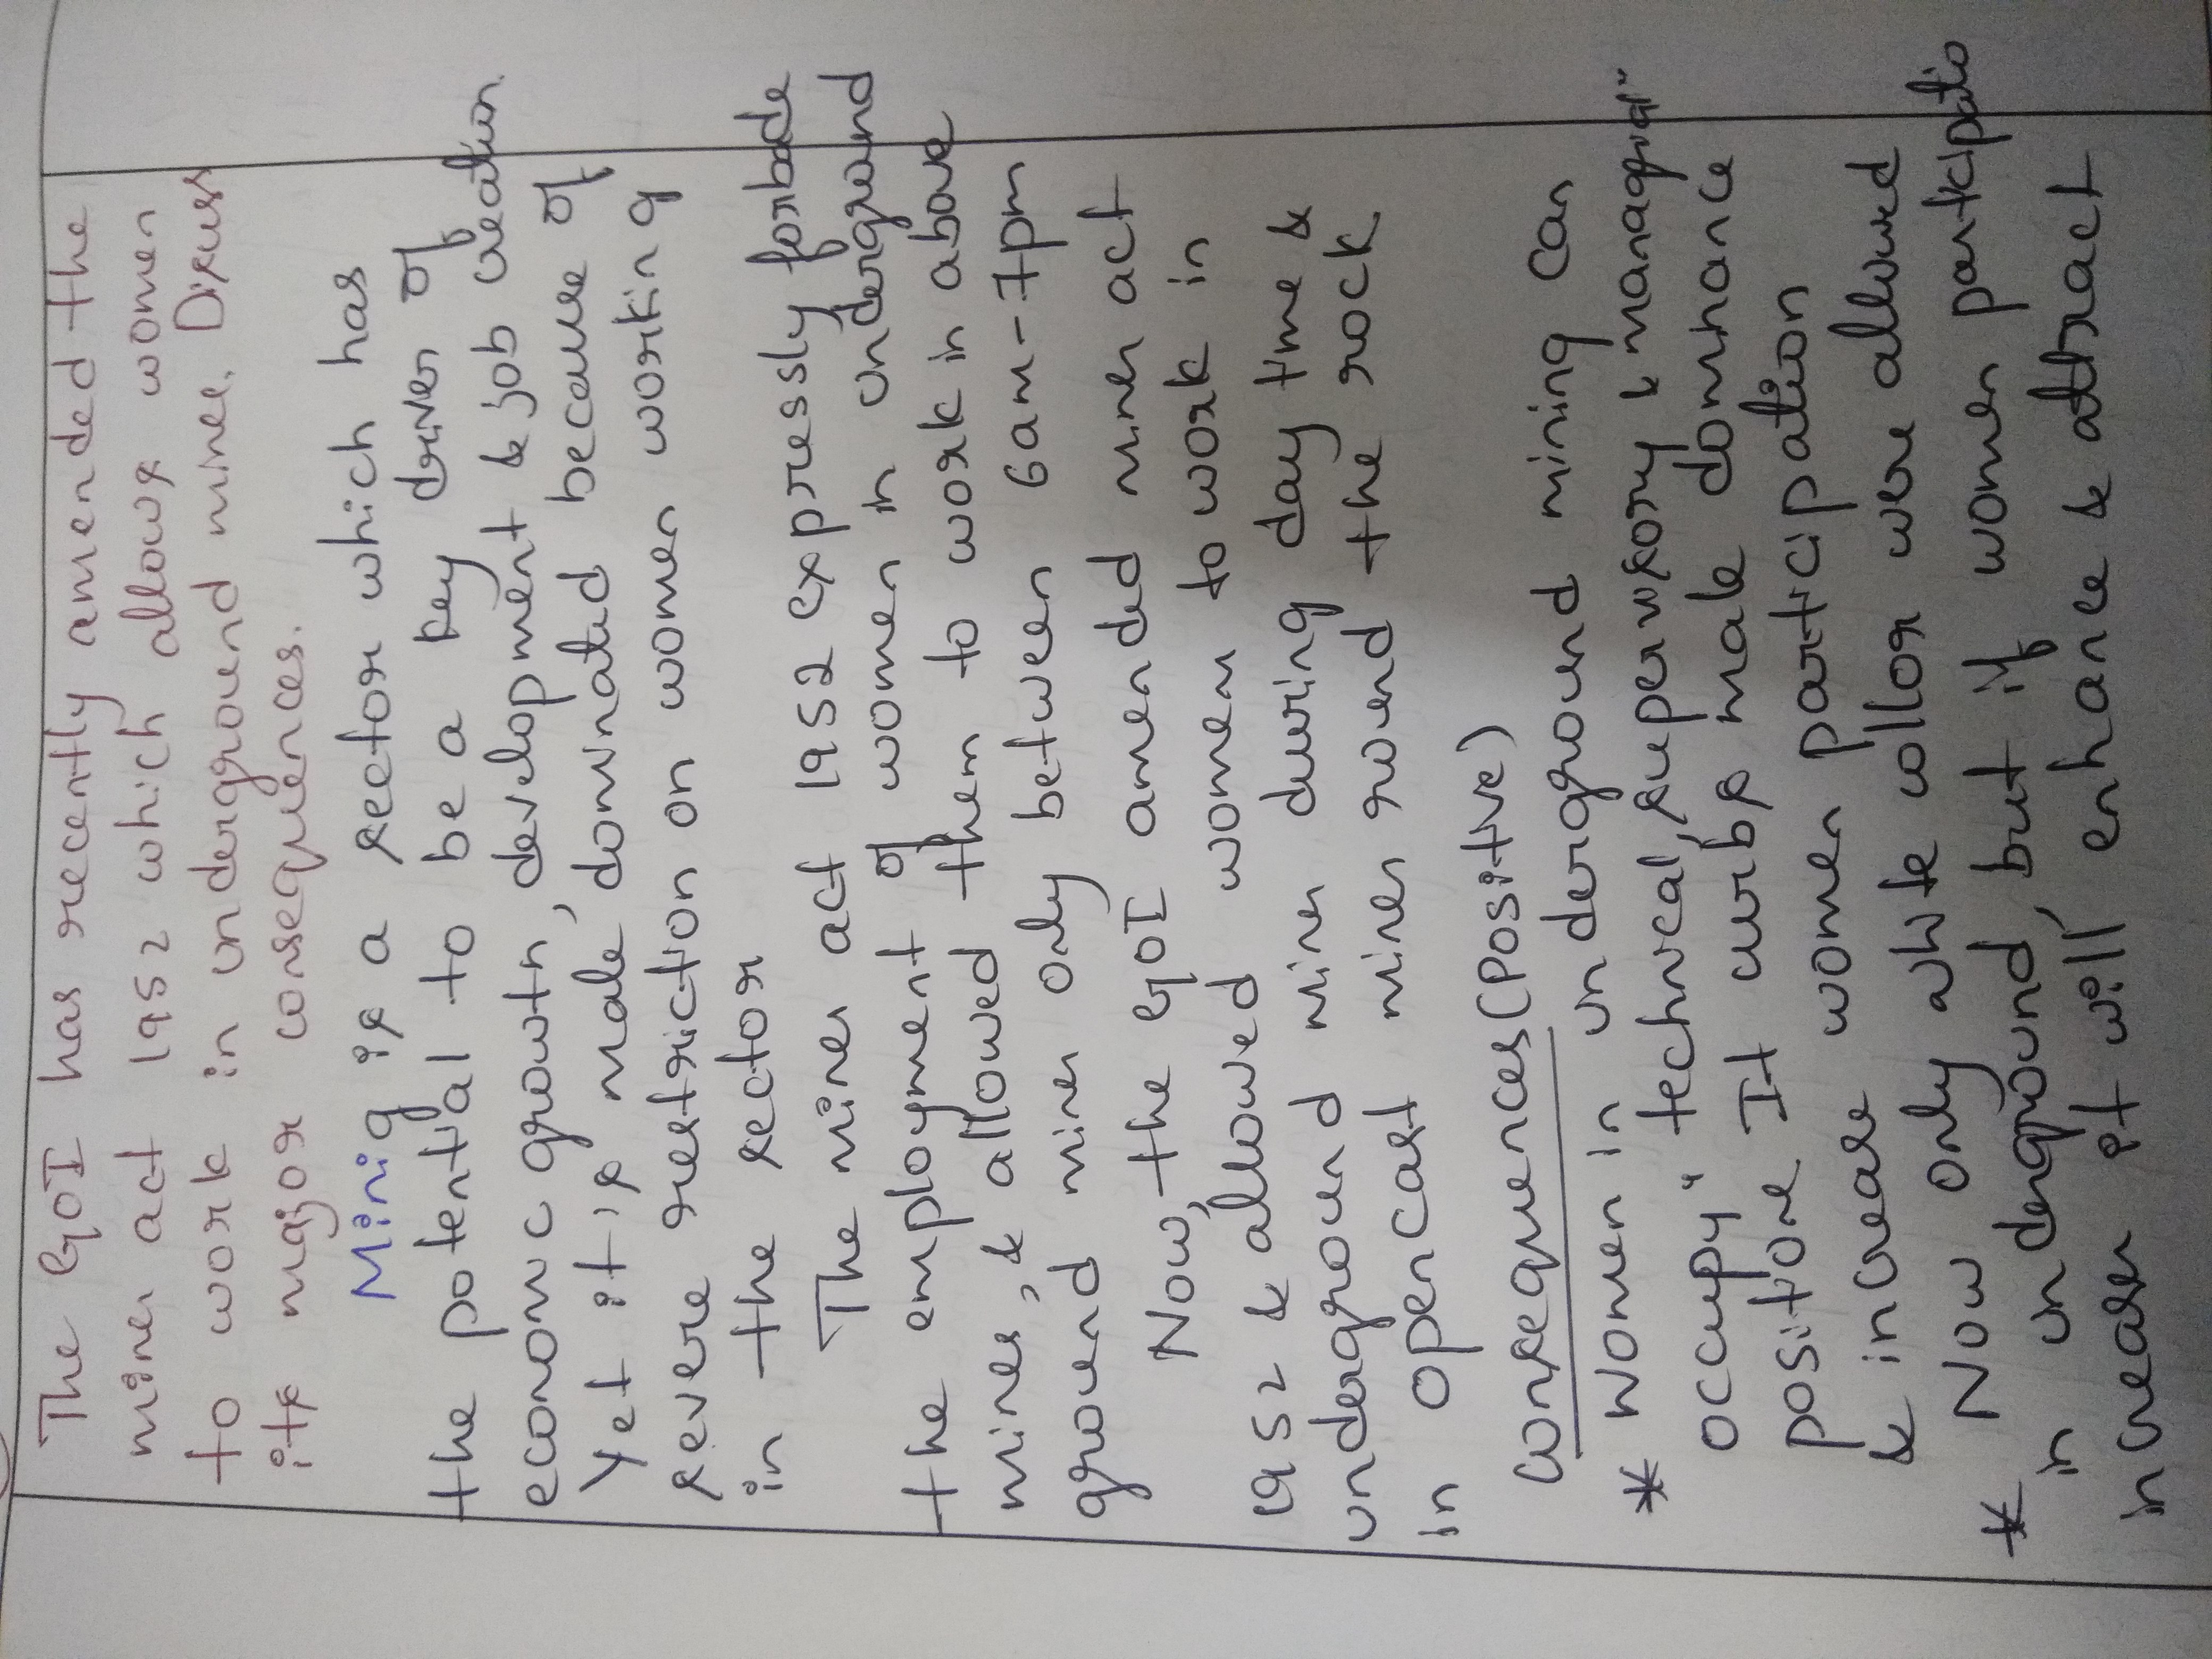 The GOI has recently amended the
mines act 1952 which allows women
to work in underground mines. Discuss
its major consequences.
Minig is a sector which has
the potential to be a key driver of
economic growth, development & job creation.
Yet it is male dominated because of
severe restriction on women working
in the sector
The mines act 1952 expressly forbade
the employment of women in underground
mines, & allowed them to work in above
ground mines only between 6am-7pm
Now, the GOI amended mines act
1952 & allowed women to work in
underground mines during day time &
in opencast mines round the rock
Consequences (Positive)
* Women in underground mining can
occupy "technical, supervisory & managerial"
positions It curbs male dominance
& increase women participation
Now only white collor were allowed
* in underground, but if women participatio
increases it will enhance & attract